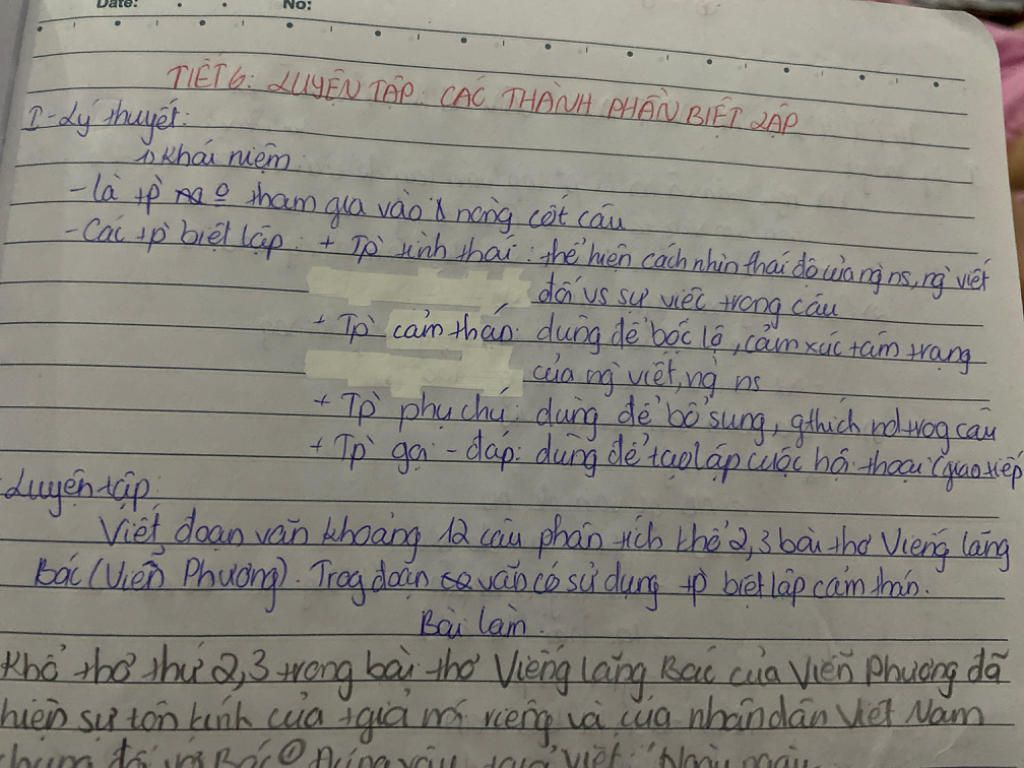 Date:
No:
TIẾT 6: LUYỆN TẬP CÁC THÀNH PHẦN BIỆT LẬP
I-Lý thuyết:
1) Khái niệm:
-là tp̀ tham gia vào nòng cốt câu
-Các tp̀ biệt lập: + Tp̀ tình thái: thể hiện cách nhìn thái độ của ng̀ ns, ng̀ viết
đối vs sự việc trong câu
+ Tp̀ cảm thán: dùng để bộc lộ, cảm xúc tâm trạng
của ng̀ viết, ng̀ ns
+ Tp̀ phụ chú: dùng để bổ sung, gthích nd trog câu
+ Tp̀ gọi - đáp: dùng để tạo lập cuộc hội thoại (giao tiếp)
Luyện tập:
Viết đoạn văn khoảng 12 câu phân tích khổ 2,3 bài thơ Viếng lăng
Bác (Viễn Phương). Trog đoạn văn có sử dụng tp̀ biệt lập cảm thán.
Bài làm.
Khổ thơ thứ 2,3 trong bài thơ Viếng lăng Bác của Viễn Phương đã
hiện sự tôn kính của tgiả nói riêng và của nhân dân Việt Nam
chung đối với Bác Đúng vậy, tgiả viết: "Ngày ngày